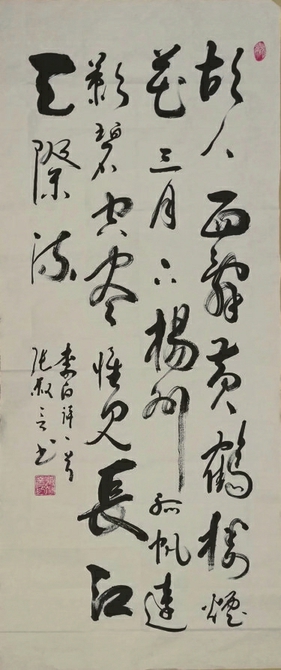 故人西辭黄鶴樓煙
花三月下楊州孤帆遠
影碧空盡惟見長江
天際流
李白詩一首
张书